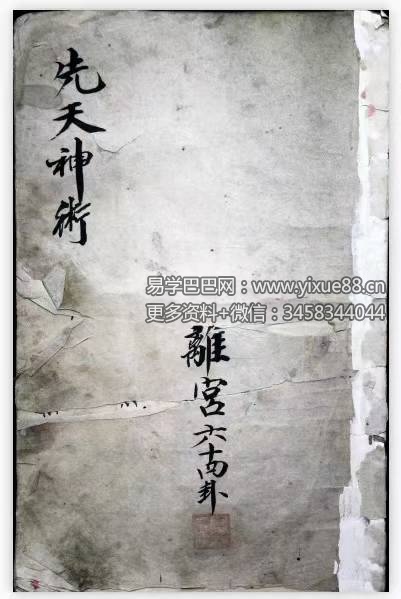 先天神術
易学巴巴网：www.yixue88.cn
更多资料+微信：3458344044
離宮六十四卦